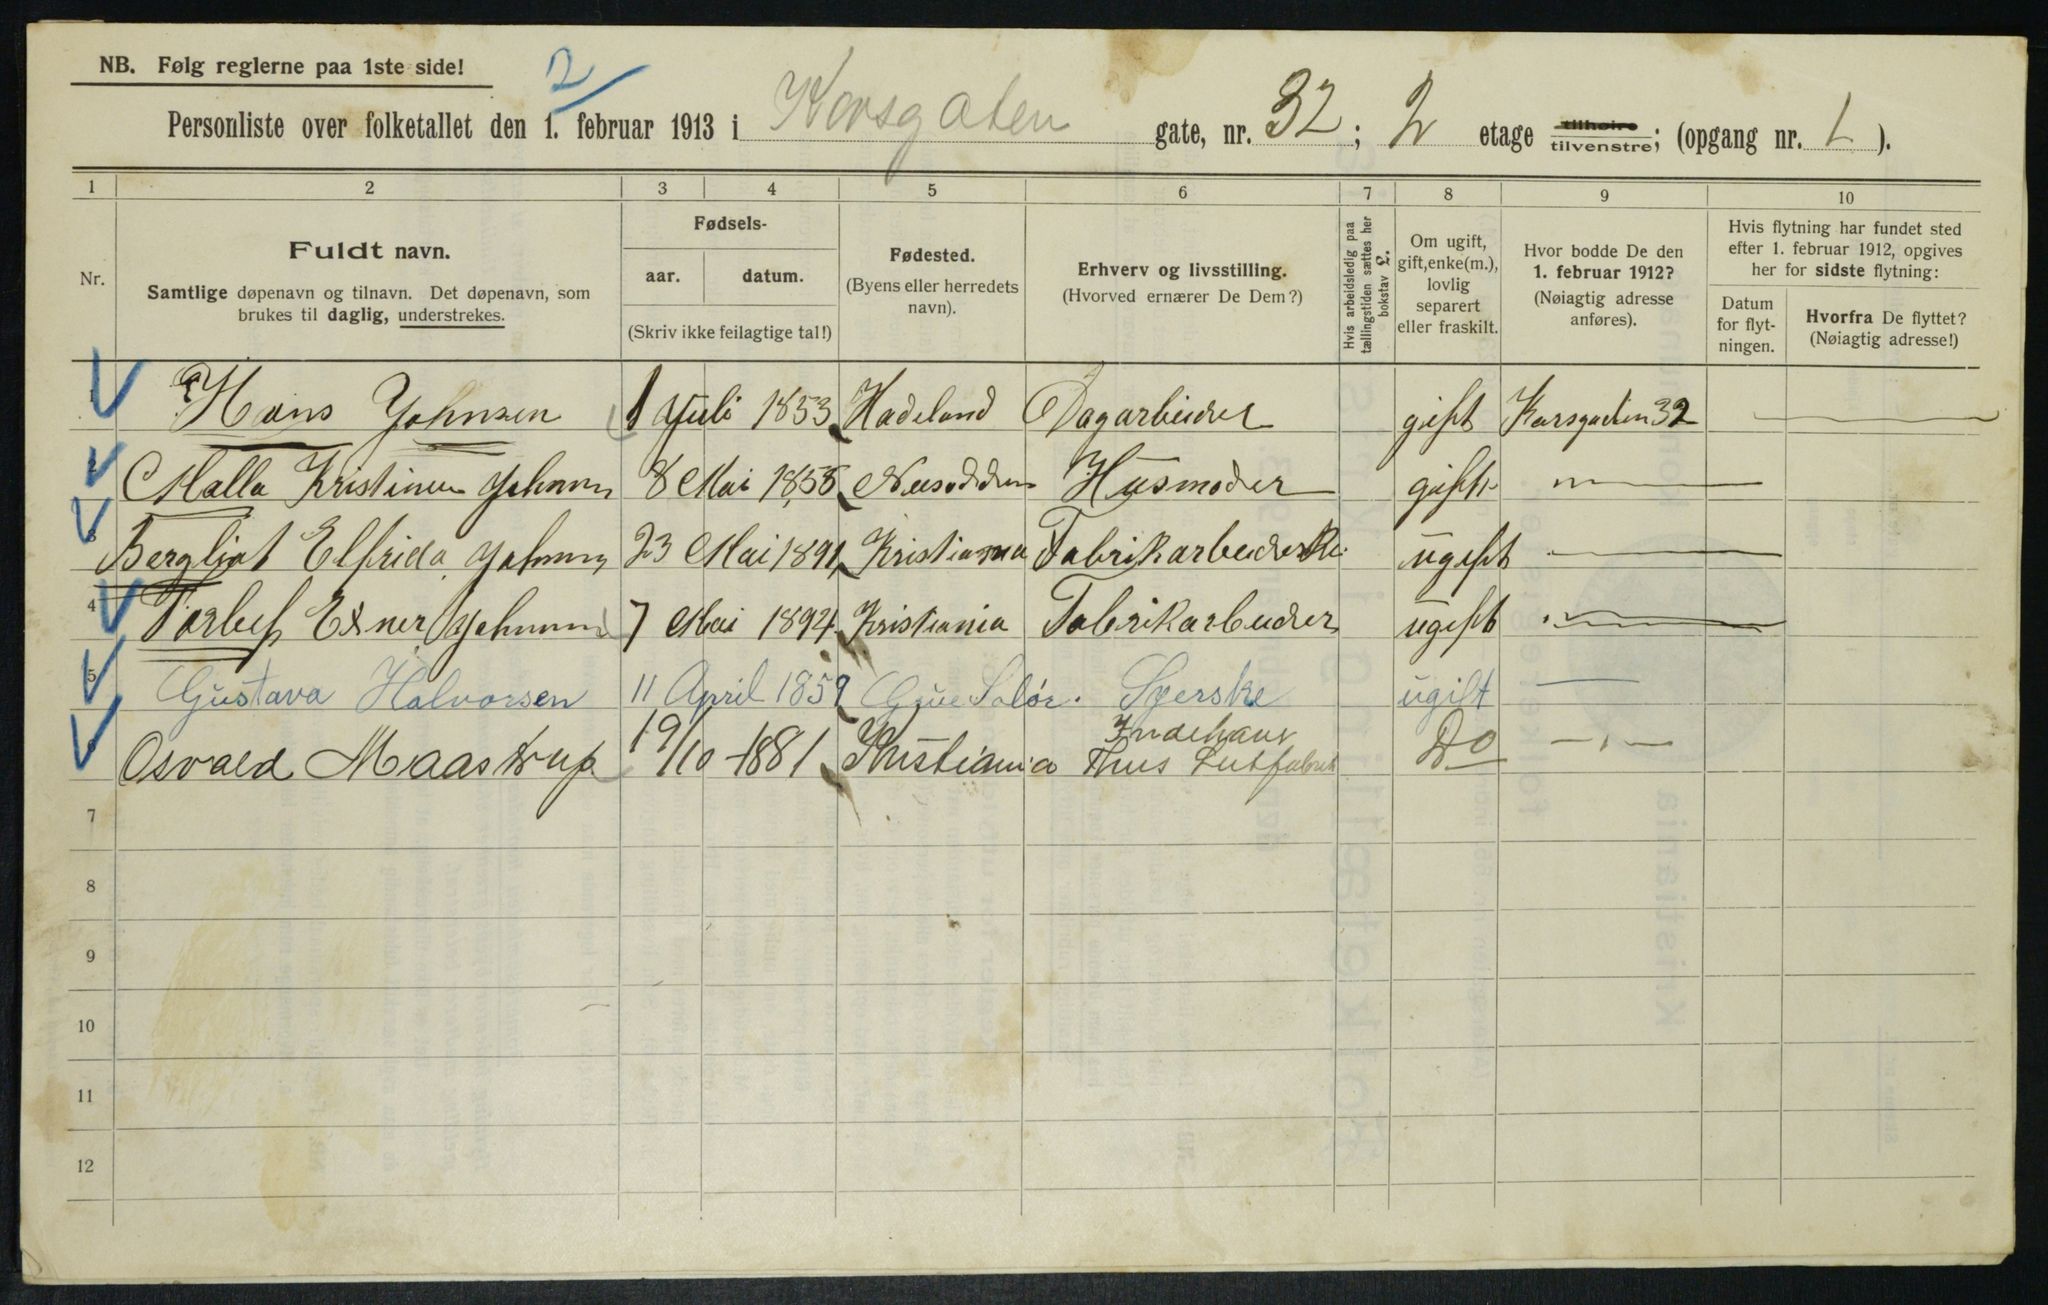 NB. Følg reglerne paa 1ste side!
2
Personliste over folketallet den 1. februar 1913 i Korsgaten gate, nr. 32; 2 etage tilhøire tilvenstre; (opgang nr. 1).
1 2 3 4 5 6 7 8 9 10
Nr.
Fuldt navn.
Samtlige døpenavn og tilnavn. Det døpenavn, som
brukes til daglig, understrekes.
Fødsels-
aar. datum.
(Skriv ikke feilagtige tal!)
Fødested.
(Byens eller herredets
navn).
Erhverv og livsstilling.
(Hvorved ernærer De Dem?)
Hvis arbeidsledig paa
tællingstiden sættes her
bokstav L.
Om ugift,
gift, enke(m.),
lovlig
separert
eller fraskilt.
Hvor bodde De den
1. februar 1912?
(Nøiagtig adresse
anføres).
Hvis flytning har fundet sted
efter 1. februar 1912, opgives
her for sidste flytning:
Datum
for flyt-
ningen.
Hvorfra De flyttet?
(Nøiagtig adresse!)
1 Hans Johnsen 1 Juli 1853 Hadeland Dagarbeider gift Korsgaden 32
2 Malla Kristine Johnsen 8 Mai 1858 Nesodden Husmoder gift
3 Bergliot Elfrida Johnsen 23 Mai 1891 Kristiania Fabrikarbeiderske ugift
4 Exner Johnsen 7 Mai 1894 Kristiania Fabrikarbeider ugift
5 Gustava Halvorsen 11 April 1859 Grue Solør. Syerske ugift
6 Osvald Maastrup 19/10-1881 Kristiania Indehaver Thus Do
7
8
9
10
11
12